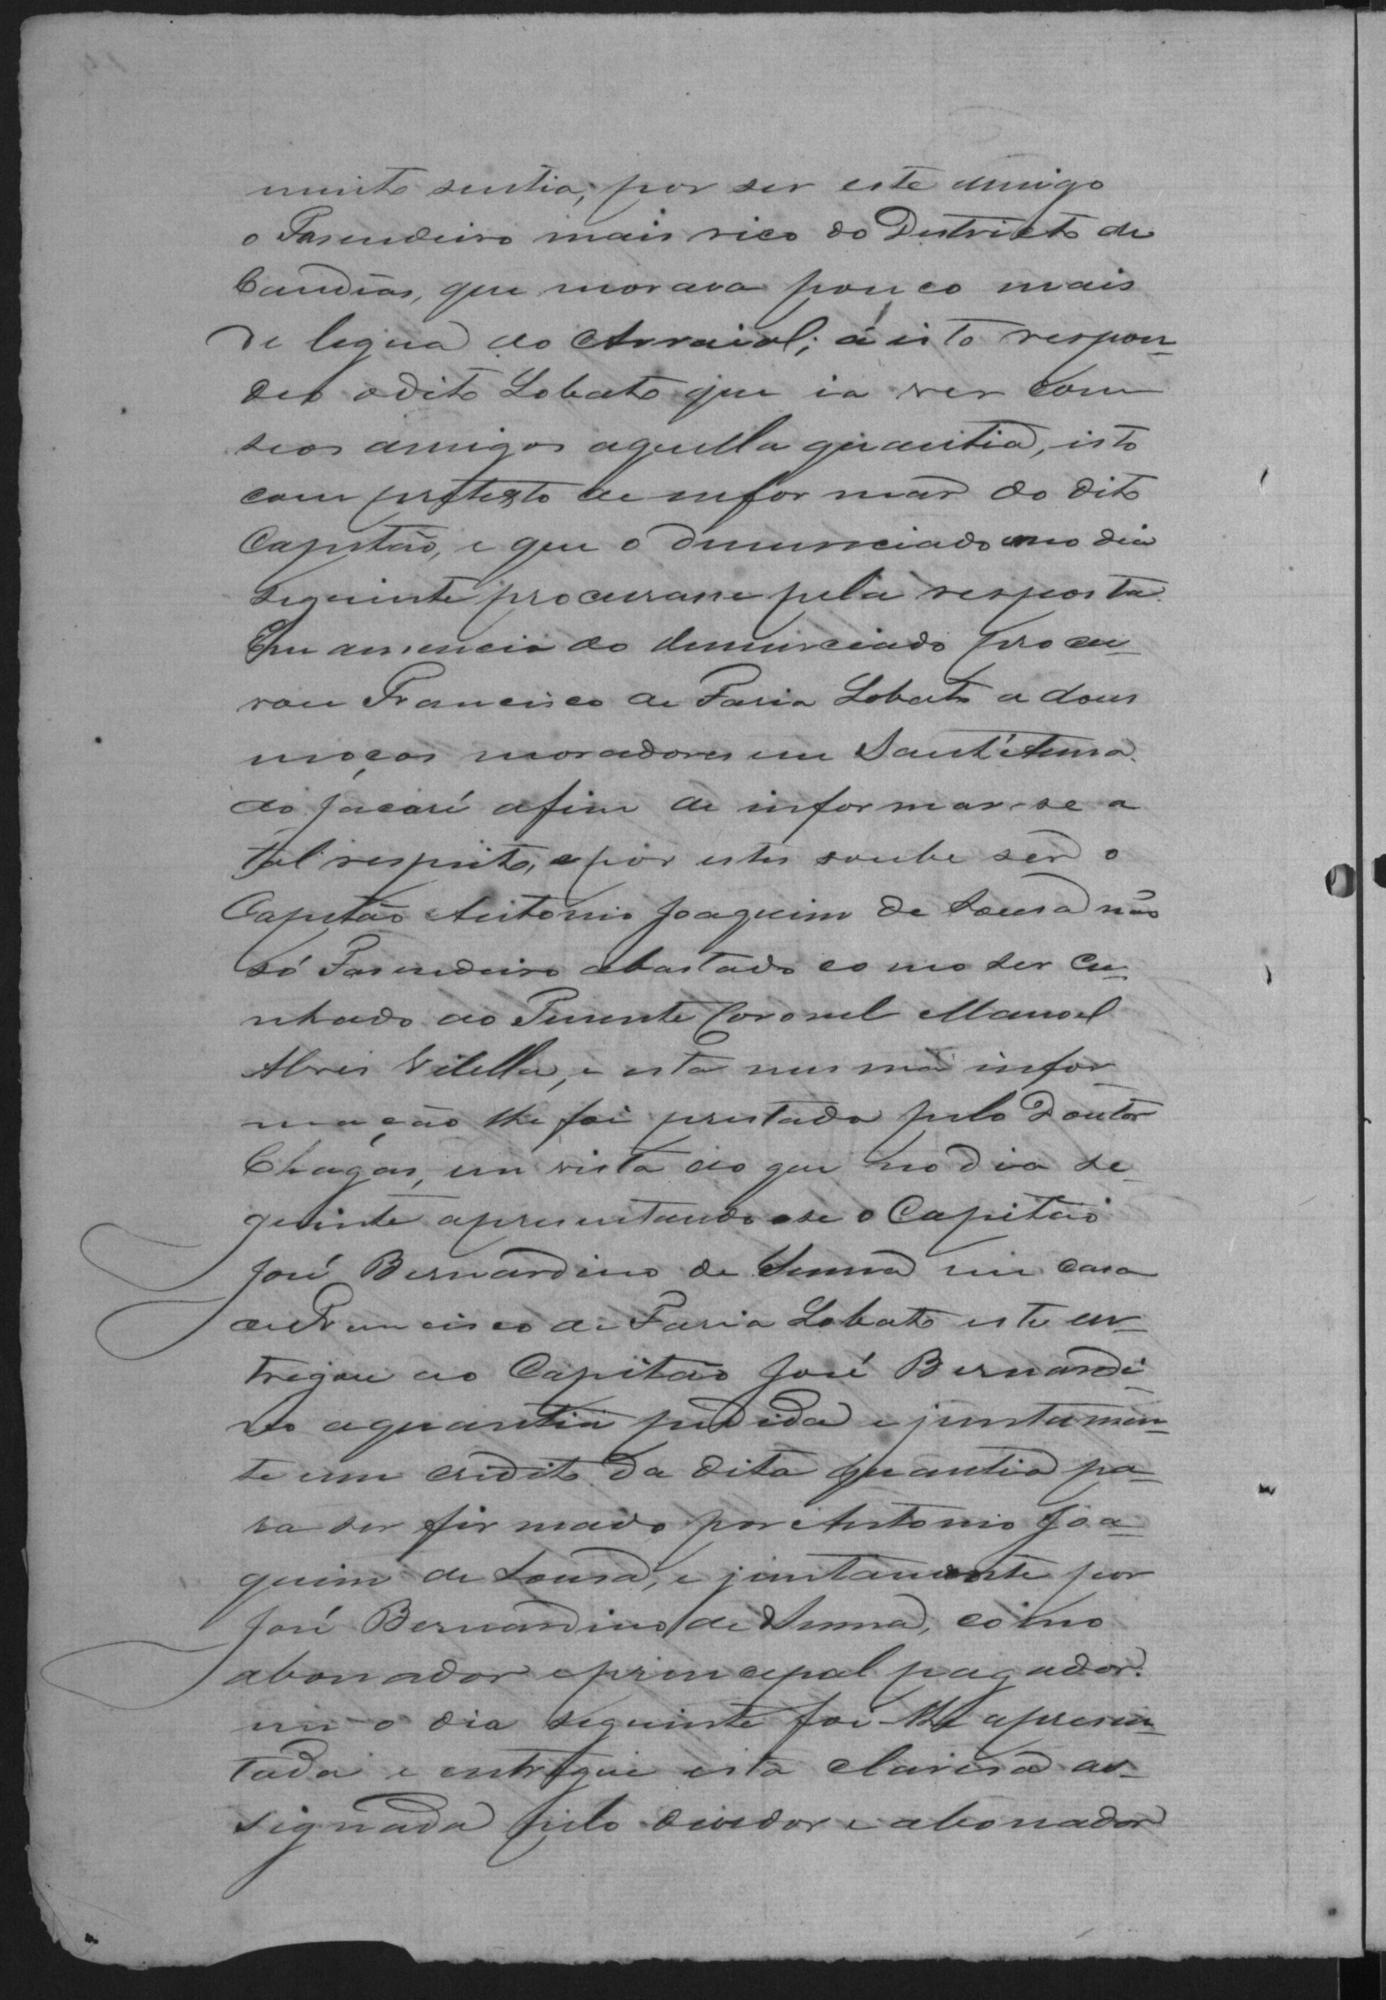 muito sentia, por ser este amigo
o Fasendeiro mais rico do Destricto de
Candêas, que morava pouco mais
de legua do Arraial; á isto respon-
deo o dito Lobato que ia ver com
seos amigos aquella quantia, isto
com pretexto de informar do dito
Capitão, e que o denunciado no dia
seguinte procurasse pela resposta.
Em ausencia do denunciado procu-
rou Francisco de Faria Lobato a dous
moços moradores em Sant'Anna
do Jacaré afim de informar-se a
tal respeito, e por estes soube ser o
Capitão Antonio Joaquim de Sousa não
só Fasendeiro abastado como ser cu-
nhado do Tenente Coronel Manoel
Alves Vilella, e esta mesma infor
mação lhe foi prestada pelo Doutor
Chagas, em vista do que no dia se-
guinte apresentando se o Capitão
José Bernardino de Senna em casa
de Francisco de Faria Lobato este en-
tregou ao Capitão José Bernardi-
no a quantia pedida e juntamen-
te um credito da dita quantia pa-
ra ser firmado por Antonio Joa-
quim de Sousa, e juntamente por
José Bernardino de Senna, como
abonador e principal pagador.
em o dia seguinte foi-lhe apresen-
tada e entregue esta claresa as-
signada pelo devedor e abonador